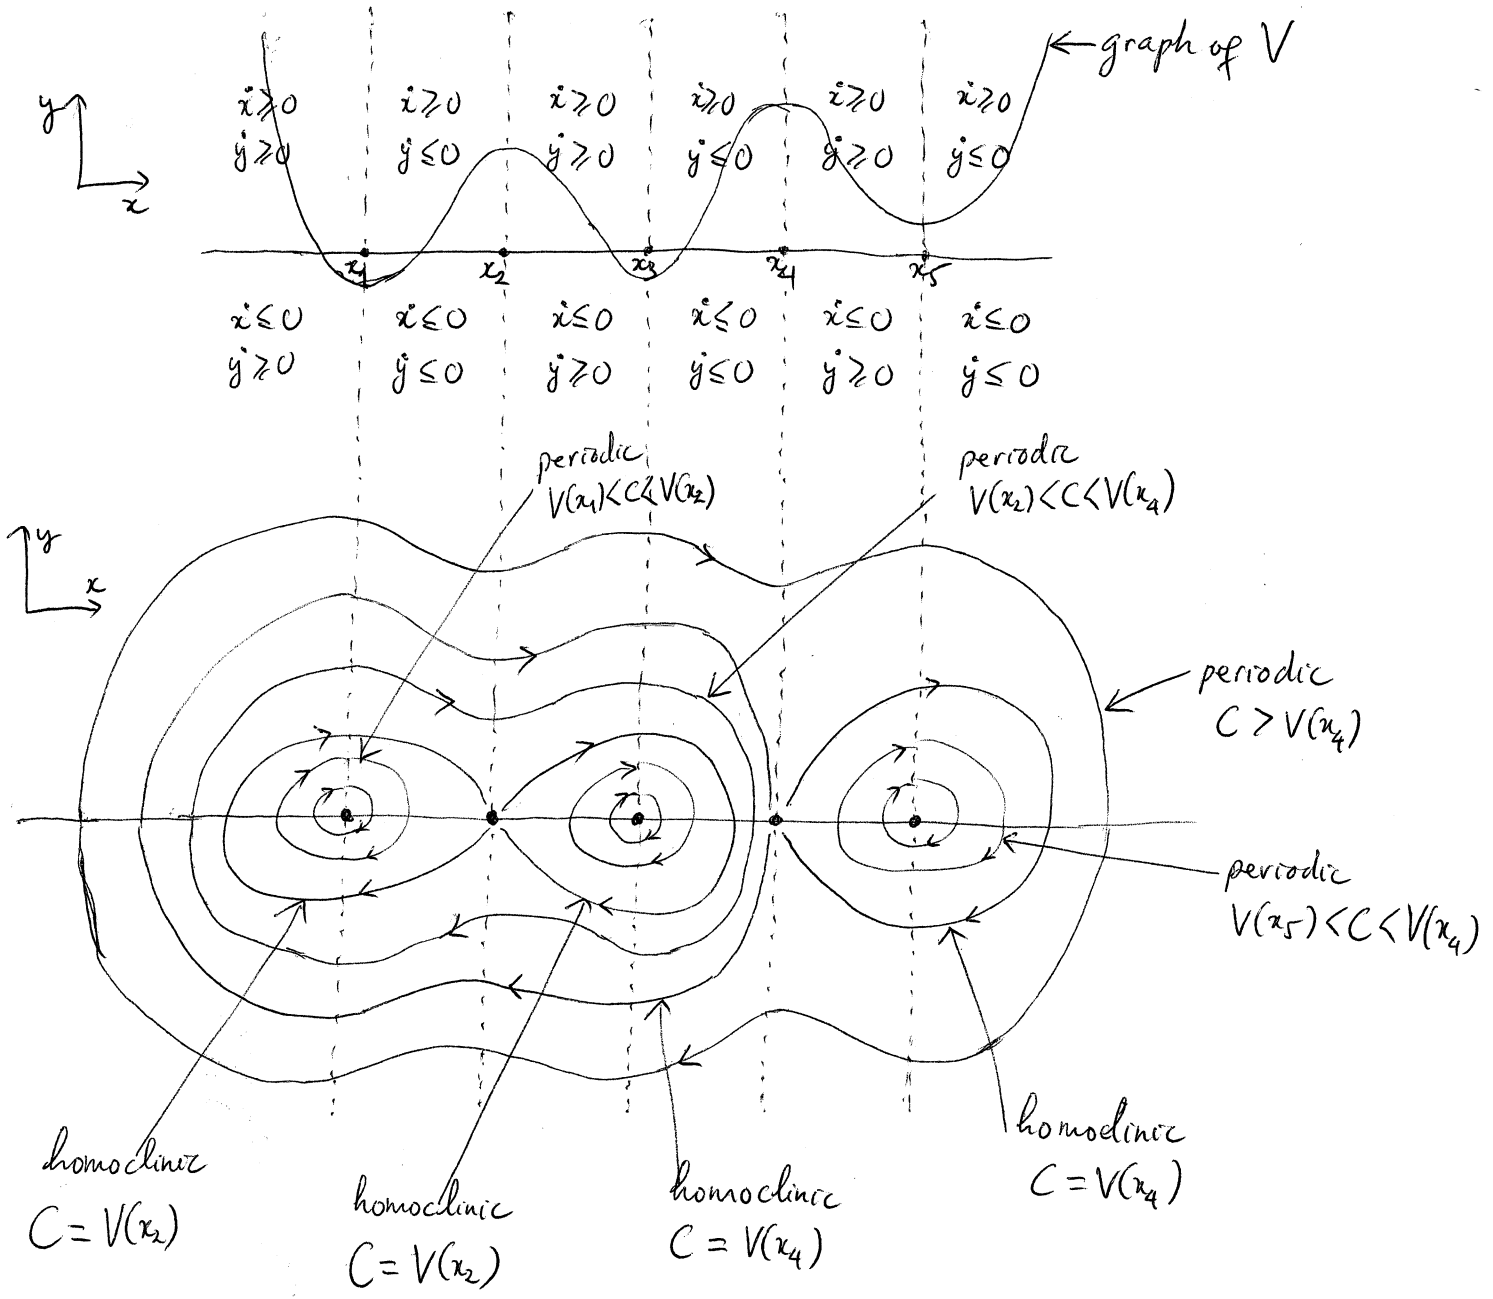 ← graph of V
y
x
ẋ≥0 ẋ≥0 ẋ≥0 ẋ≥0 ẋ≥0 ẋ≥0
ẏ≥0 ẏ≤0 ẏ≥0 ẏ≤0 ẏ≥0 ẏ≤0
x₁ x₂ x₃ x₄ x₅
ẋ≤0 ẋ≤0 ẋ≤0 ẋ≤0 ẋ≤0 ẋ≤0
ẏ≥0 ẏ≤0 ẏ≥0 ẏ≤0 ẏ≥0 ẏ≤0
periodic
V(x₁)<C<V(x₂)
periodic
V(x₂)<C<V(x₄)
y
x
periodic
C > V(x₄)
periodic
V(x₅)<C<V(x₄)
homoclinic
C = V(x₂)
homoclinic
C = V(x₂)
homoclinic
C = V(x₄)
homoclinic
C = V(x₄)